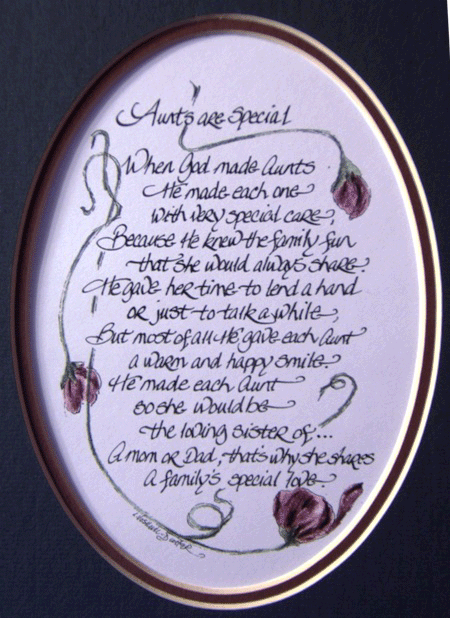 Aunts are Special
When God made Aunts
He made each one
with very special care,
Because He knew the family fun
that she would always share.
He gave her time to lend a hand
or just to talk awhile,
But most of all He gave each Aunt
a warm and happy smile.
He made each Aunt
so she would be
the loving sister of...
A mom or Dad, that's why she shares
A family's special love.